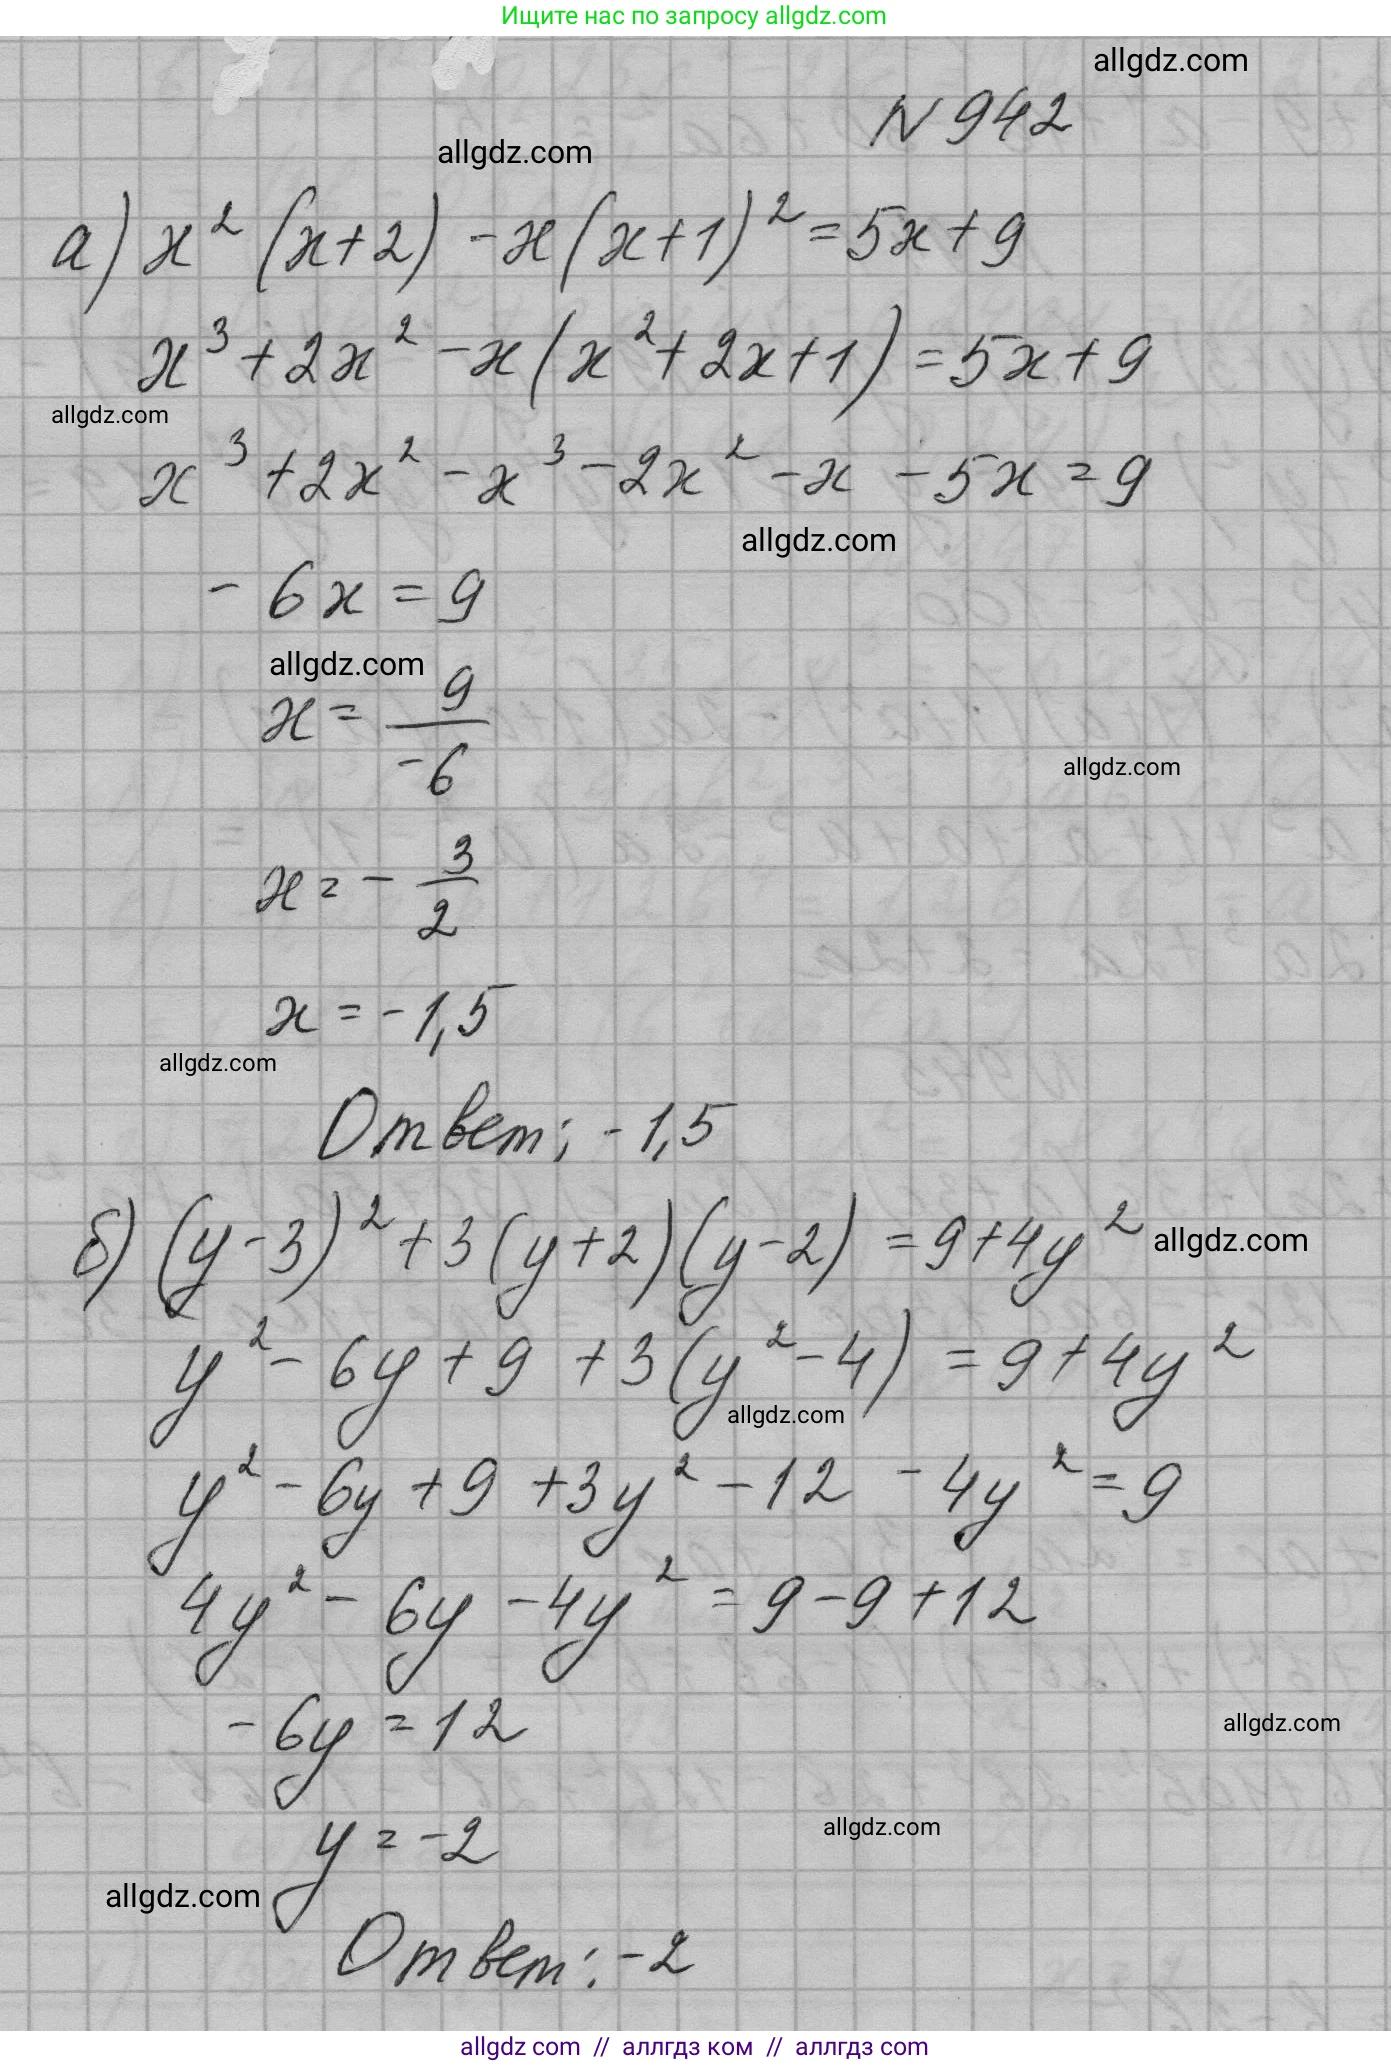 Ищите нас по запросу allgdz.com
allgdz.com
N 942
allgdz.com
а) x² (x+2) - x (x+1)² = 5x + 9
x³ + 2x² - x (x² + 2x + 1) = 5x + 9
allgdz.com
x³ + 2x² - x³ - 2x² - x - 5x = 9
allgdz.com
- 6x = 9
allgdz.com
x = 9/-6
allgdz.com
x = - 3/2
x = -1,5
allgdz.com
Ответ: -1,5
б) (y-3)² + 3 (y+2) (y-2) = 9 + 4y²
allgdz.com
y² - 6y + 9 + 3 (y² - 4) = 9 + 4y²
allgdz.com
y² - 6y + 9 + 3y² - 12 - 4y² = 9
4y² - 6y - 4y² = 9 - 9 + 12
- 6y = 12
allgdz.com
allgdz.com
y = -2
allgdz.com
Ответ: -2
allgdz com // аллгдз ком // аллгдз com